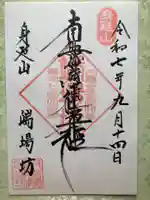 身延山
令和七年九月十四日
南無妙法蓮華経
身延山
端場坊